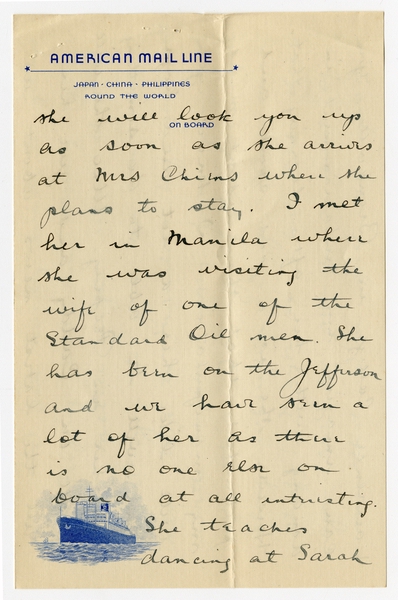 AMERICAN MAIL LINE
JAPAN · CHINA · PHILIPPINES
ROUND THE WORLD
ON BOARD
she will look you up
as soon as she arrives
at Mrs when she
plans to stay. I met
her in Manila where
she was visiting the
wife of one of the
Standard Oil men. She
has been on the Jefferson
and we have seen a
lot of her as there
is no one else on
board at all interesting.
She teaches
dancing at Sarah